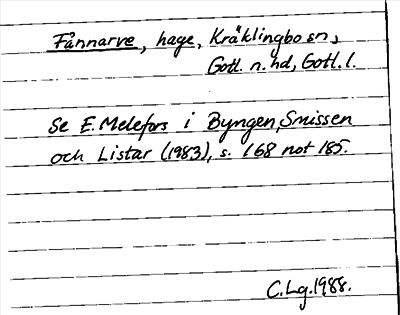 Fånnarve, hage, Kräklingbo sn,
Gotl. n. hd, Gotl. l.
Se E. Melefors i Byngen, Snissen
och Listar (1983), s. 168 not 185.
C. Lg. 1988.